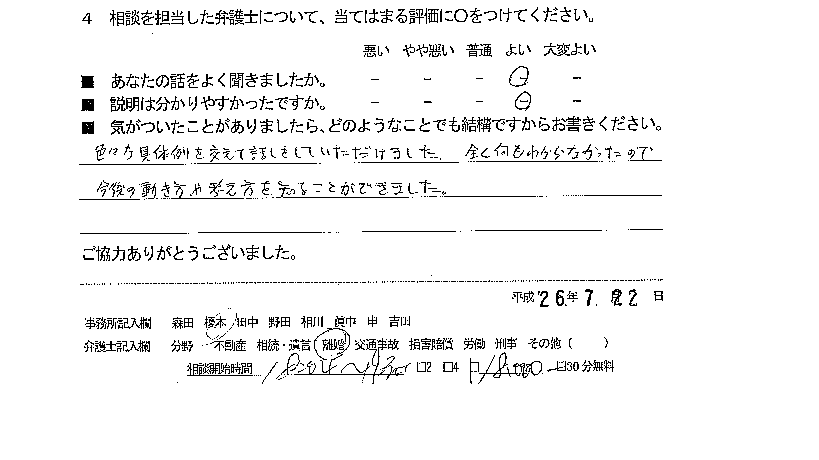 4 相談を担当した弁護士について、当てはまる評価に〇をつけてください。
悪い やや悪い 普通 よい 大変よい
■ あなたの話をよく聞きましたか。 － － － － －
■ 説明は分かりやすかったですか。 － － － － －
■ 気がついたことがありましたら、どのようなことでも結構ですからお書きください。
色々な具体例を交えて話しをしていただけました。 全く何もわからなかったので
今後の動き方や考え方を知ることができました。
ご協力ありがとうございました。
平成 26年 7. 22 日
事務所記入欄 森田 榎本 田中 野田 相川 眞中 申 吉田
弁護士記入欄 分野 不動産 相続・遺言 離婚 交通事故 損害賠償 労働 刑事 その他（ ）
相談開始時間 □2 □4 □ □30分無料